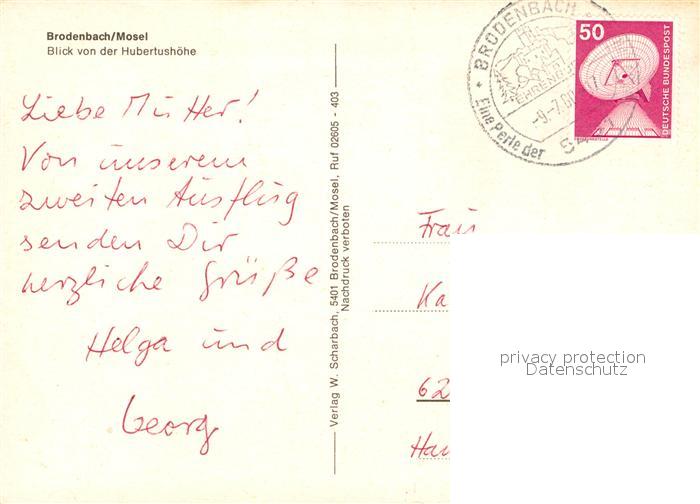 Brodenbach/Mosel
Blick von der Hubertushöhe
Liebe Mutter!
Von unserem
zweiten Ausflug
senden Dir
herzliche Grüße
Helga und
Georg
Verlag W. Scharbach, 5401 Brodenbach/Mosel, Ruf 02605 - 403
Nachdruck verboten
BRODENBACH
EHRENBURG
-9.-7.80
Eine Perle der
54
50
DEUTSCHE BUNDESPOST
Frau
Ka
62
Han
privacy protection
Datenschutz